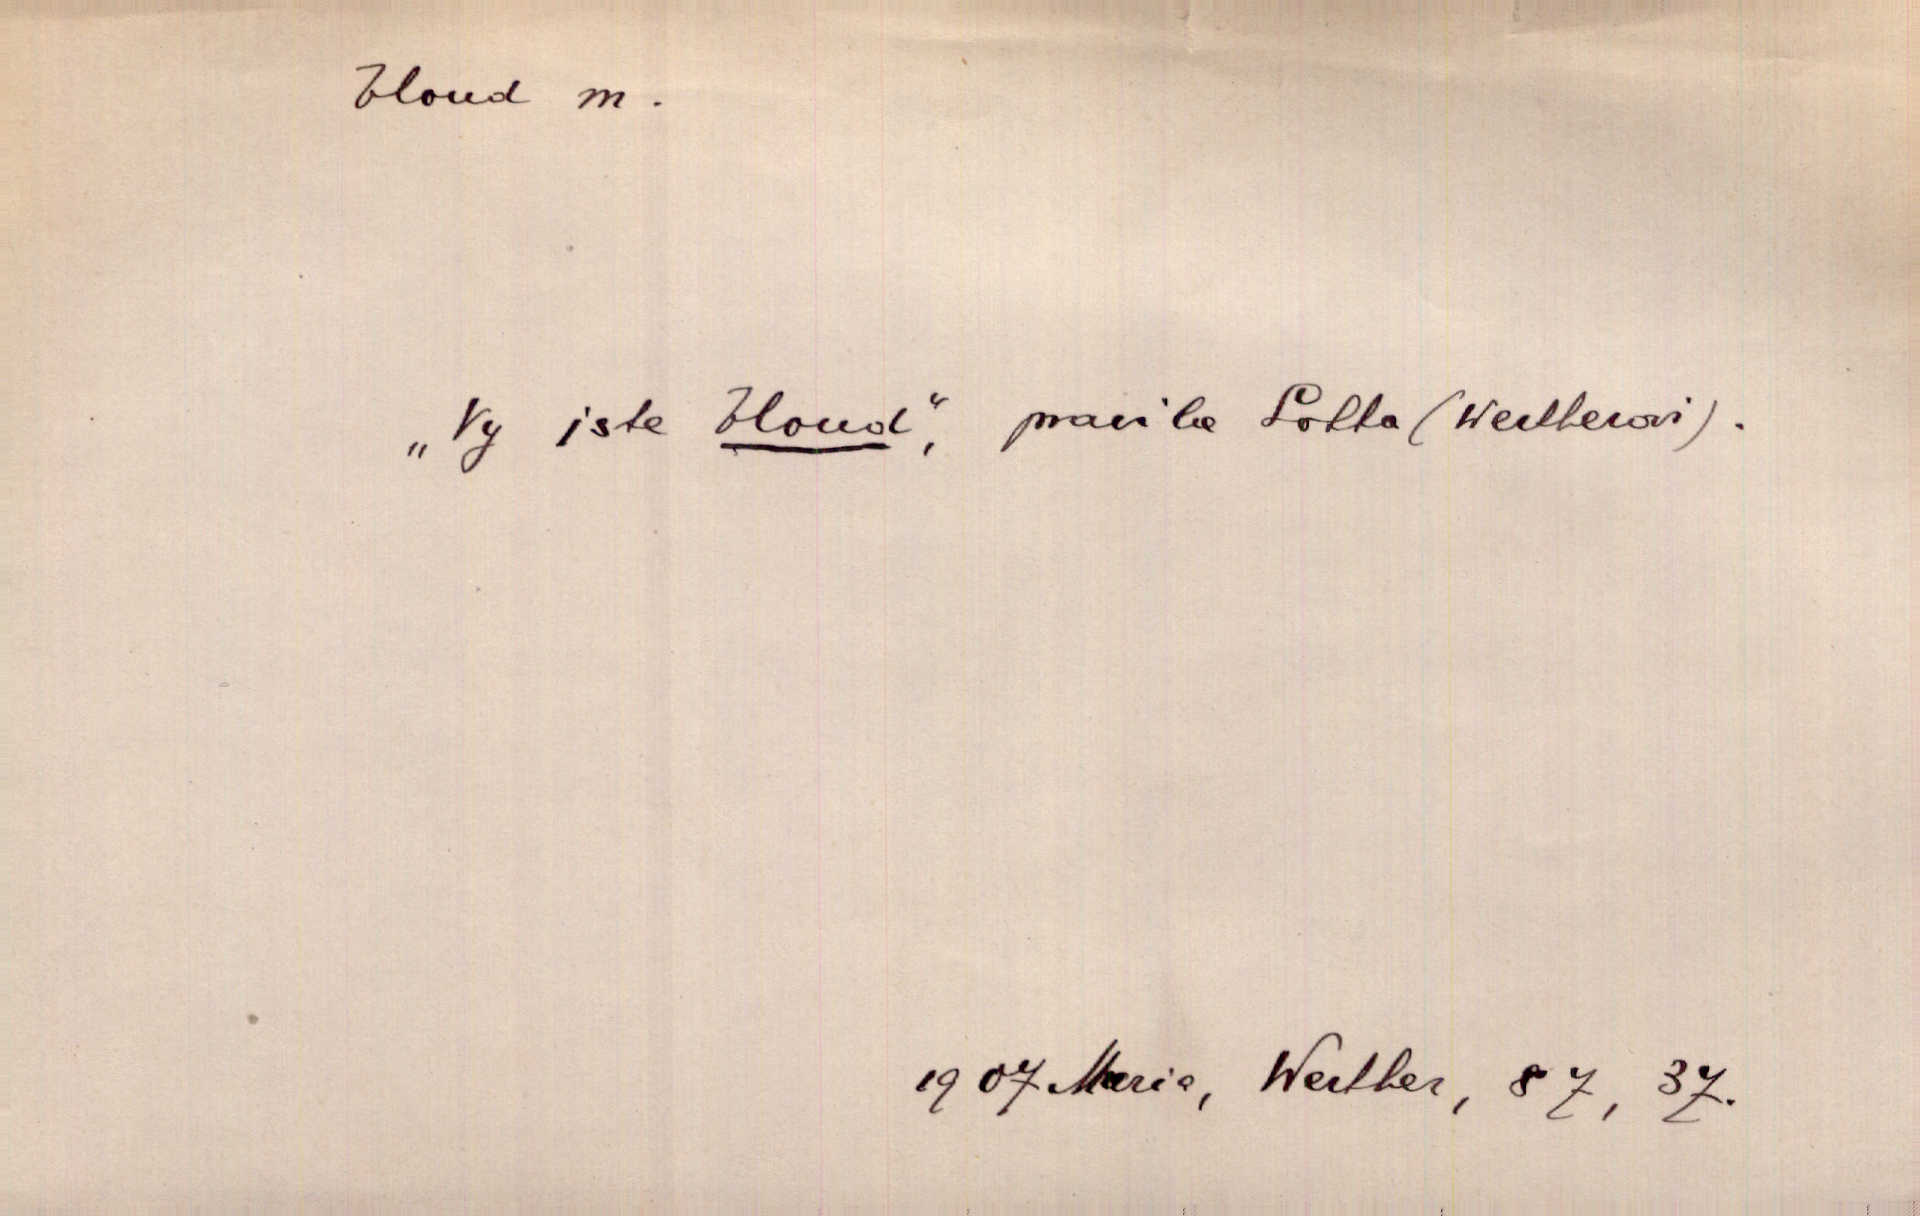 Zloud m.
„Vy jste Zloud“, pravila Lotta (Wertherovi).
1907 Maria, Werther, 87, 37.